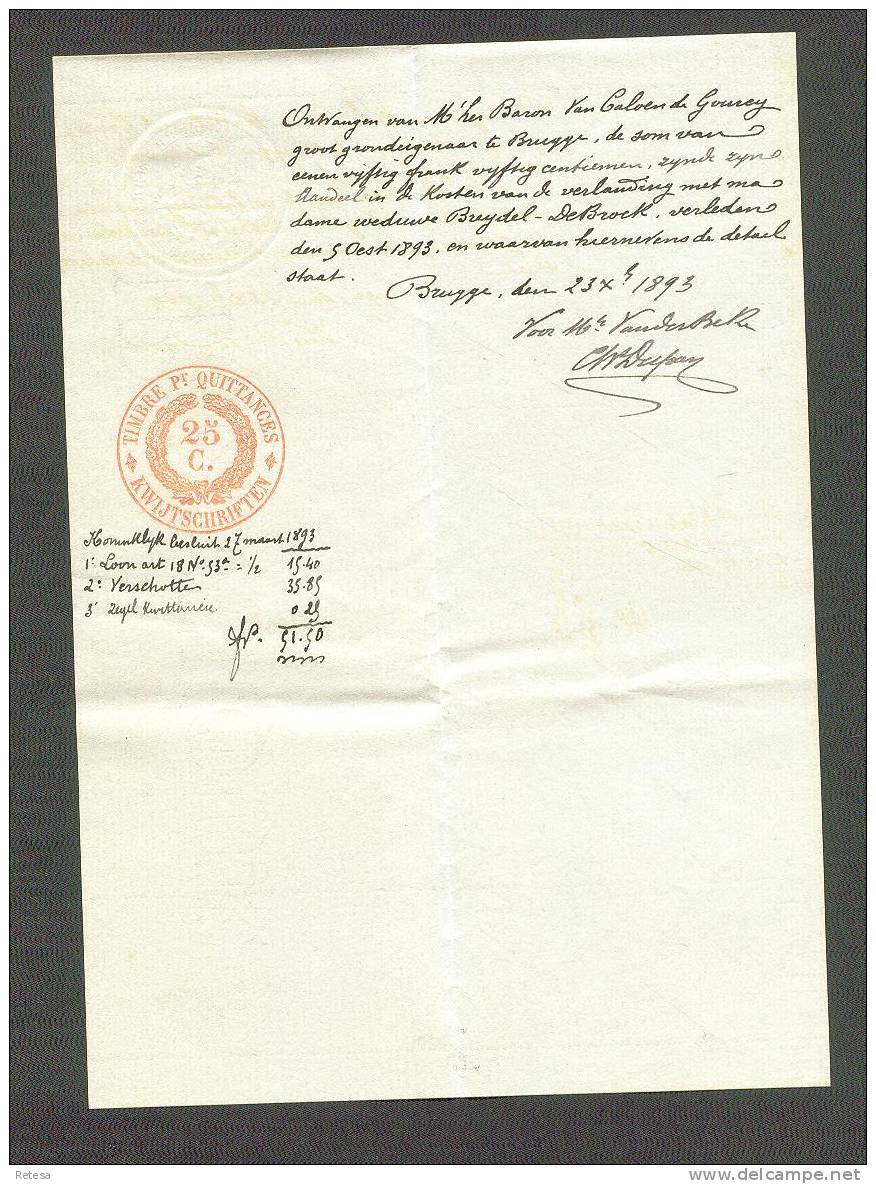 Ontvangen van M'her Baron Van Caloen de Gourcy
groot grondeigenaar te Brugge, de som van
eenen vijftig frank vijftig centiemen, zynde zyn
Aandeel in de Kosten van de verlanding met ma
dame weduwe Breydel - De Brock, verleden
den 5 Oest 1893, en waarvan hiernevens de detail
staat.
Brugge, den 23 Xb 1893
Voor Mr VanderBeke
TIMBRE Pr QUITTANCES
25
C.
KWIJTSCHRIFTEN
Koninklyk besluit 27 maart 1893
1° Loon art 18 No 53a = 1/2 15.40
2° Verschotten 35.85
3° Zegel Kwittancie. 0 25
fr. 51.50
Retesa
www.delcampe.net